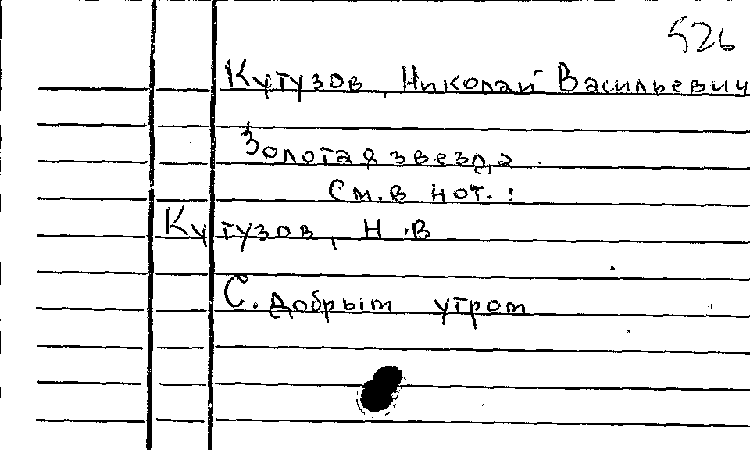 526
Кутузов, Николай Васильевич
Золотая звезда.
См. в нот.:
Кутузов, Н.В
С. добрым утром